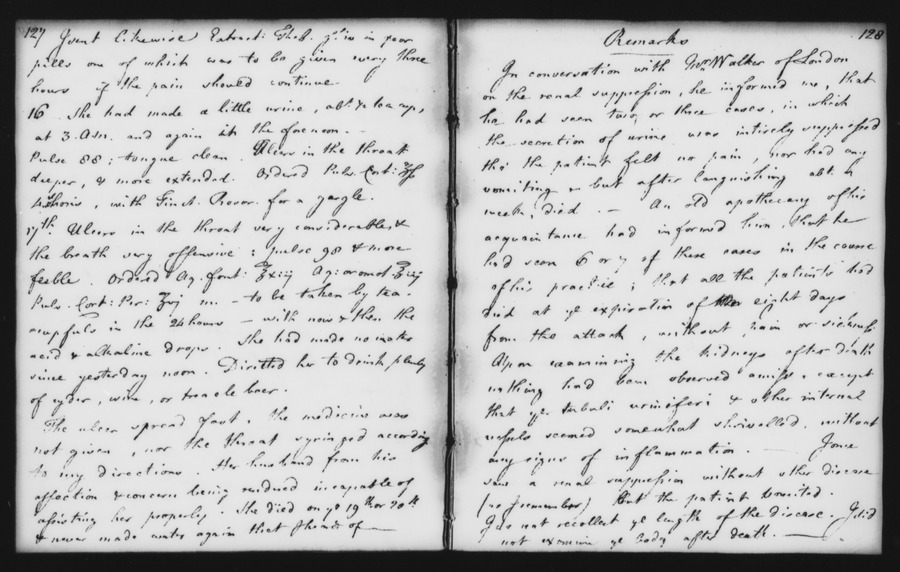 127
I sent likewise Extract: Theb. gr iv in four
pills one of which was to be given every three
hours if the pain should continue
16 She had made a little urine, abt. a tea cup,
at 3 A.m. and again in the afternoon. -
Pulse 88; tongue clean. Ulcers in the throat
deeper, & more extended. Ordered Pulv. Cort:
horis, with Tinct. Rosar. for a gargle.
17th. Ulcers in the throat very considerable, &
the breath very offensive; pulse 98 & more
feeble. Ordered Aq. font: Aq: aromat
Pulv. Cort: Per: m. - to be taken by tea-
cupfuls in the 24 hours - with now & then the
acid & alkaline drops. She had made no water
since yesterday noon. Directed her to drink plenty
of cyder, wine, or treacle beer.
The ulcer spread fast, the medicine was
not given nor the throat syringed according
to my directions. Her husband from his
affection & concern being rendered incapable of
assisting her properly. She died on ye 19th or 20th
& never made water again that I heard of -
128
Remarks
In conversation with Mr. Walker of London
on the renal suppression, he informed me, that
he had seen two, or three cases, in which
the secretion of urine was intirely suppressed
tho' the patient felt no pain, nor had any
vomiting - but after languishing abt. a
week, died. - An old apothecary of his
acquaintance had informed him, that he
had seen 6 or 7 of these cases in the course
of his practice; that all the patients had
died at ye expiration of eight days
from the attack, without pain or sickness.
Upon examining the kidneys after death
nothing had been observed amiss, except
that ye. tubuli uriniferi & other internal
vessels seemed somewhat shrivelled, without
any signs of inflammation. - I once
saw a renal suppression without other disease
(as I remember) But the patient vomited.
I do not recollect ye length of the disease. I did
not examine ye body after death. -